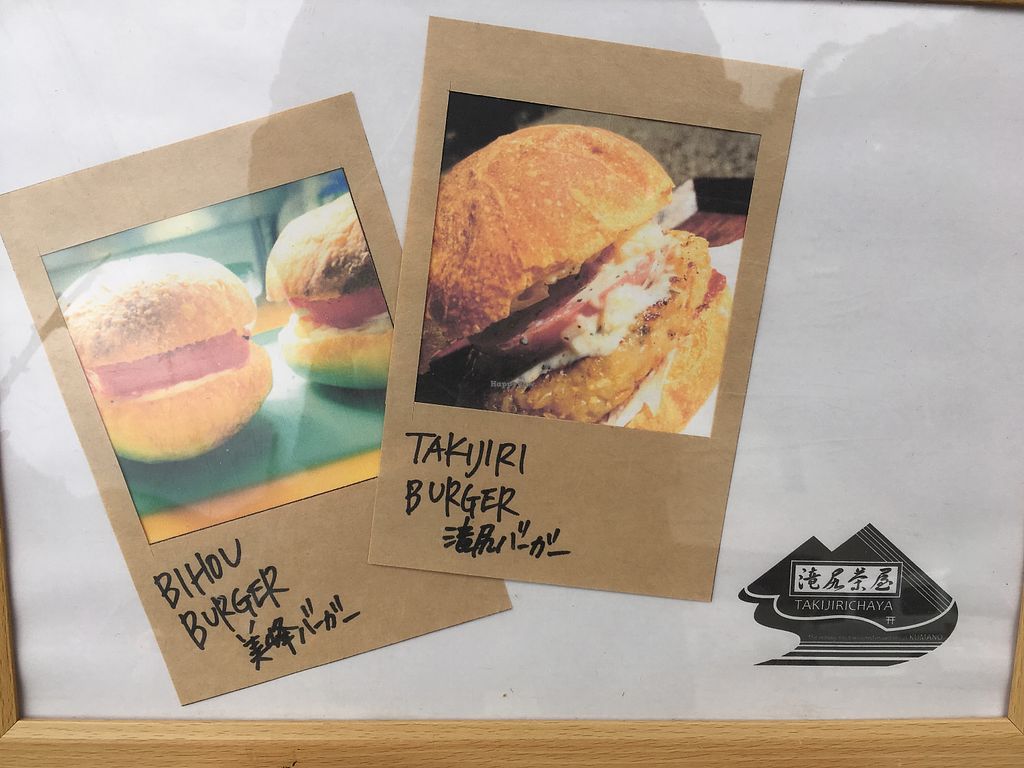 BIHOU
BURGER
美峰バーガー
TAKIJIRI
BURGER
滝尻バーガー
滝尻茶屋
TAKIJIRICHAYA
KUMANO